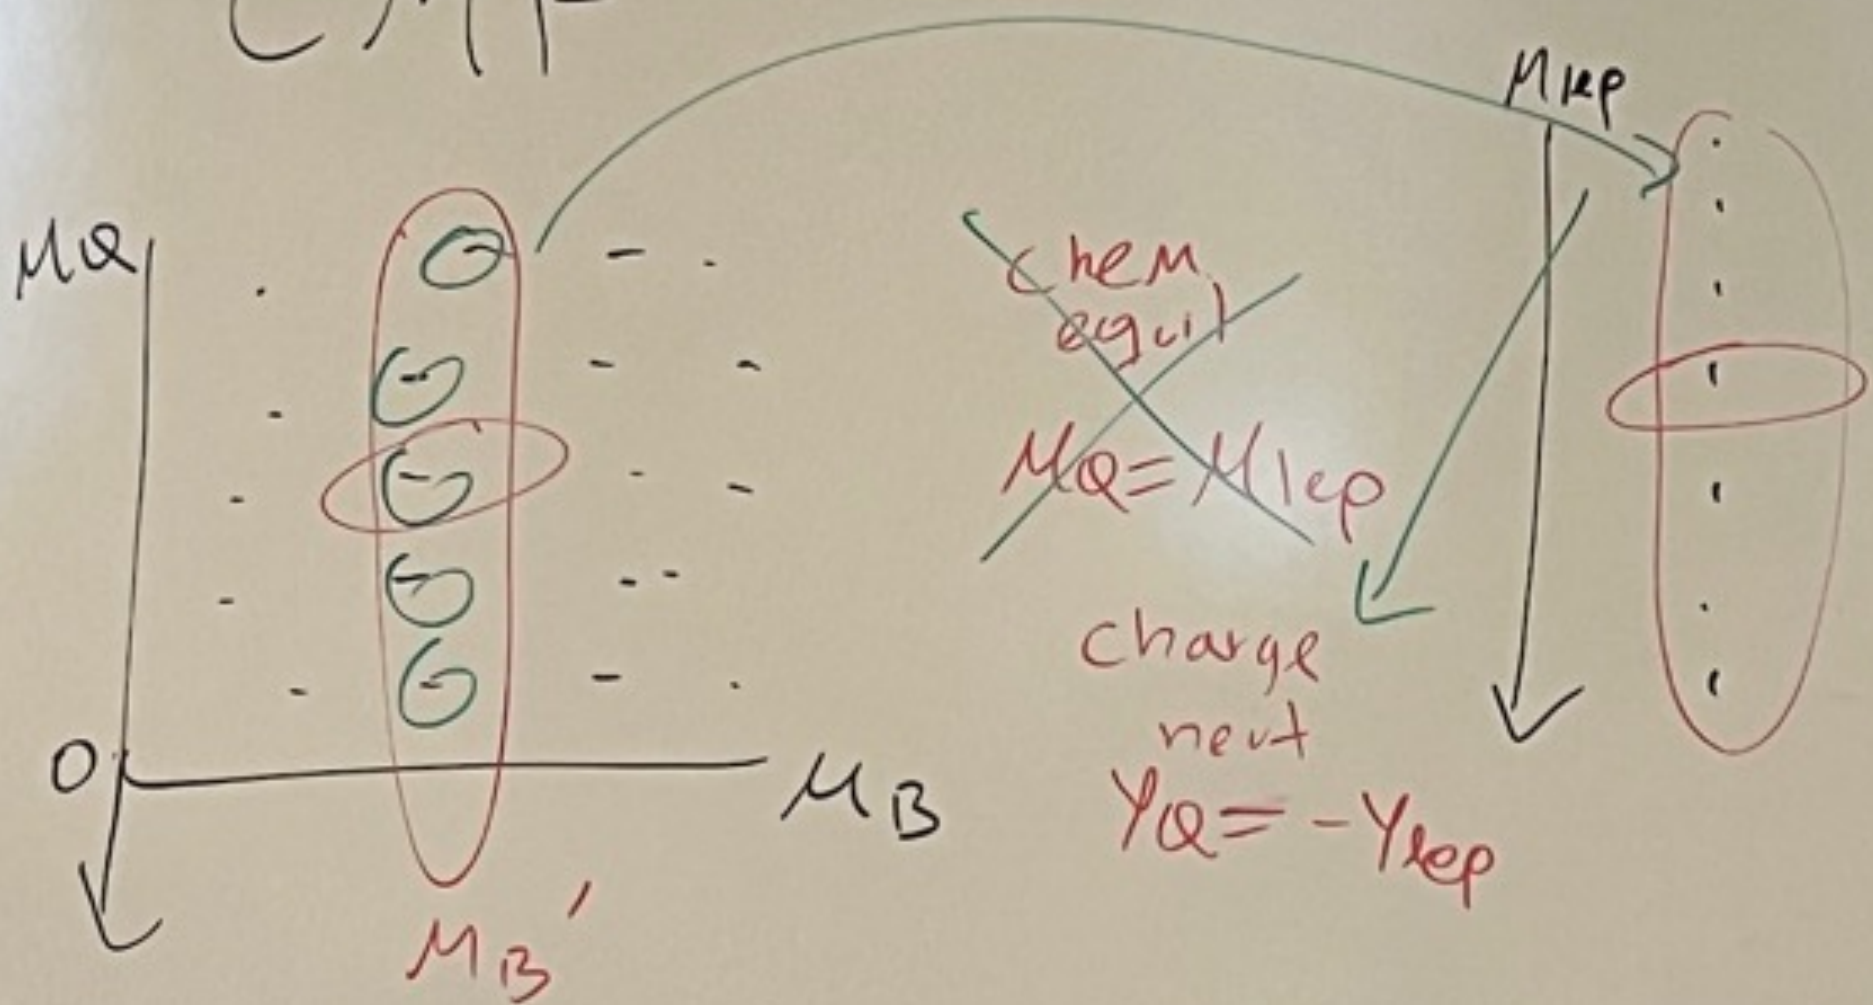 CMF
μlep
μQ
chem
equil
μQ = μlep
charge
neut
YQ = -Ylep
0
μB
μB'